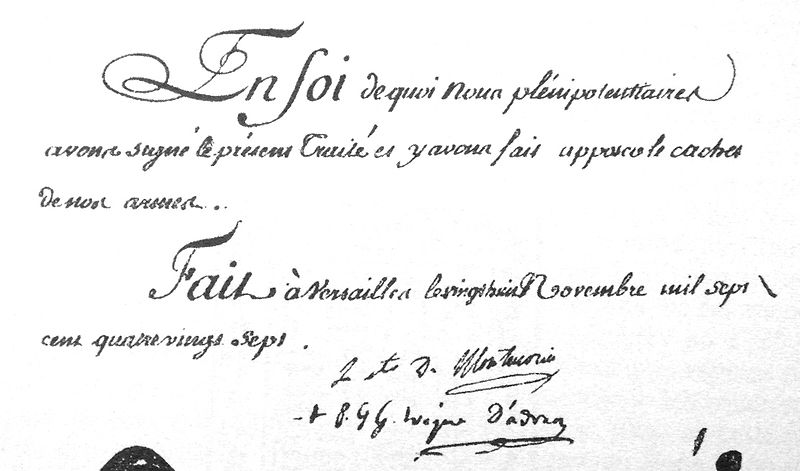 En foi de quoi Nous plénipotentiaires
avons signé le présent Traité et y avons fait apposer le cachet
de nos armes.
Fait à Versailles le vingt huit Novembre mil sept
cent quatrevingt sept.
Le cte De Montmorin
+ P. J. G. eveque D'adran